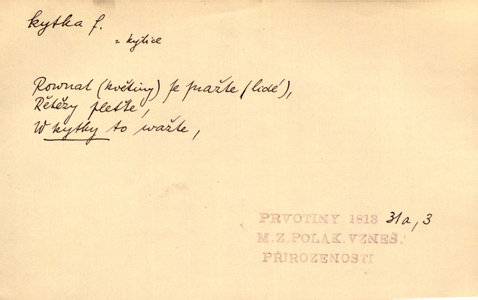 kytka f.
= kytice
Rownat (květiny) se snažte (lidé),
Řětězy pleťte,
W kytky to wažte,
PRVOTINY 1813 31a, 3
M.Z.POLAK.VZNEŠ.
PŘIROZENOSTI